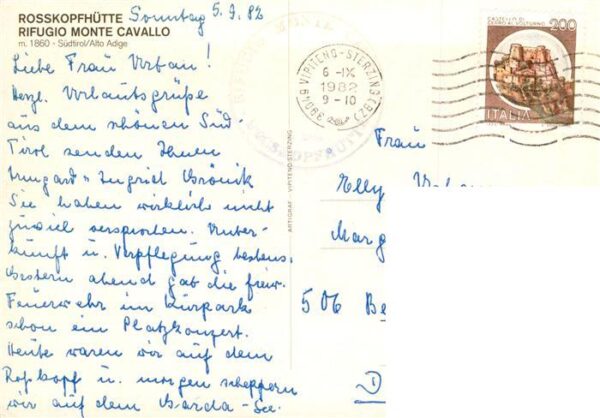 ROSSKOPFHÜTTE
RIFUGIO MONTE CAVALLO
m. 1860 - Südtirol/Alto Adige
Sonntag 5.9.82
Liebe Frau Urban!
Herzl. Urlaubsgrüße
aus dem schönen Süd-
Tirol senden Ihnen
Irmgard + Ingrid
Sie haben wirklich nicht
zuviel versprochen. Unter-
kunft u. Verpflegung bestens.
Gestern abend gab die freiw.
Feuerwehr im Kurpark
schon ein Platzkonzert.
Heute waren wir auf dem
Roßkopf u. morgen scheppern
wir auf dem Garda-See.
ARTIGRAF - VIPITENO-STERZING
39049 VIPITENO-STERZING (BZ)
6 -IX
1982
9-10
CASTELLO DI
CERRO AL VOLTURNO
200
ITALIA
Frau
Elly
Marg
506 Be
D